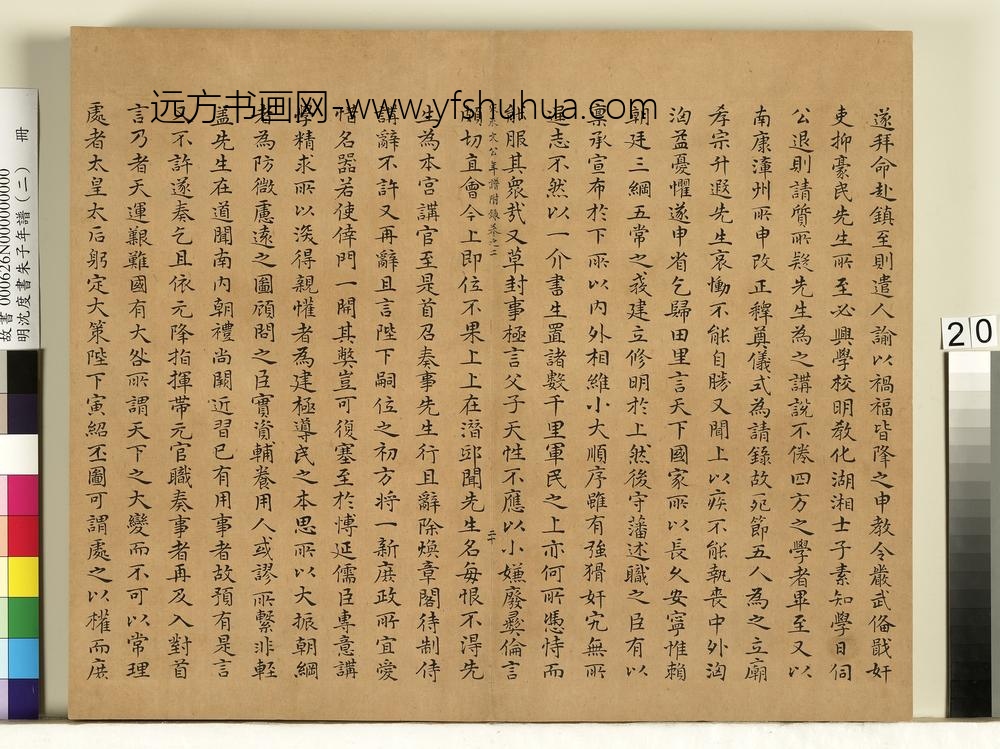 遂拜命赴鎮至則遣人諭以禍福皆降之申教令嚴武俻戢奸
吏抑豪民先生所至必興學校明教化湖湘士子素知學日伺
公退則請質所疑先生為之講說不倦四方之學者畢至又以
南康漳州所申改正釋奠儀式為請錄故死節五人為之立廟
孝宗升遐先生哀慟不能自勝又聞上以疾不能執喪中外洶
洶益憂懼遂申省乞歸田里言天下國家所以長久安寧惟賴
朝廷三綱五常之義建立修明於上然後守藩述職之臣有以
稟承宣布於下所以內外相維小大順序雖有強猾奸宄無所
逞志不然以一介書生置諸數千里軍民之上亦何所憑恃而
能服其衆哉又草封事極言父子天性不應以小嫌廢彝倫言
文公年譜附錄卷之二
二十
頗切直會今上即位不果上上在潛邸聞先生名每恨不得先
生為本宮講官至是首召奏事先生行且辭除煥章閣待制侍
講辭不許又再辭且言陛下嗣位之初方將一新庶政所宜愛
惜名器若使倖門一開其獘豈可復塞至於愽延儒臣專意講
學精求所以深得親懽者為建極導民之本思所以大振朝綱
者為防微慮遠之圖顧問之臣實資輔養用人或謬所繫非輕
蓋先生在道聞南內朝禮尚闕近習已有用事者故預有是言
又不許遂奏乞且依元降指揮帶元官職奏事者再及入對首
言乃者天運艱難國有大咎所謂天下之大變而不可以常理
處者太皇太后躬定大策陛下寅紹丕圖可謂處之以權而庶
远方书画网-www.yfshuhua.com
故書 000626N000000000
明沈度書朱子年譜(二) 冊
20